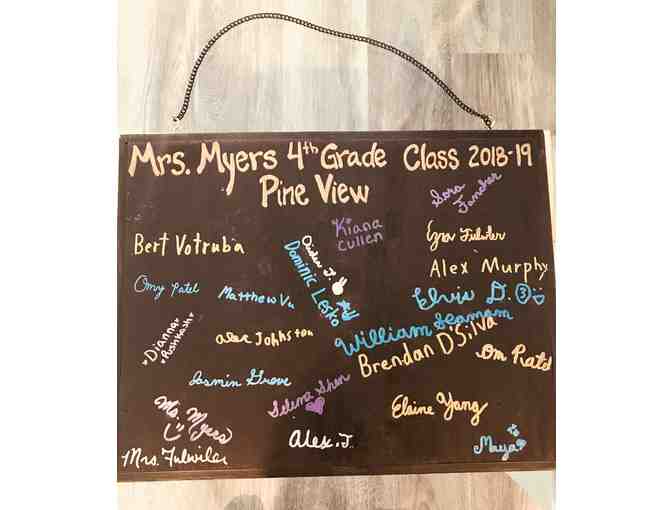 Mrs. Myers 4th Grade Class 2018-19
Pine View
Sara
Fancher
Kiana
Cullen
Ezra Fulwiler
Bert Votruba
Alex Murphy
Dominic Lesko
Omy Patel
Matthew Vu
Elvis D. 3
William Seamam
Dianna
Alex Johnston
Brendan D'Silva
Om Patel
Jasmin Grove
Selena Shen
Elaine Yang
Ms. Myers
Alex. J.
Mrs. Fulwiler
Maya